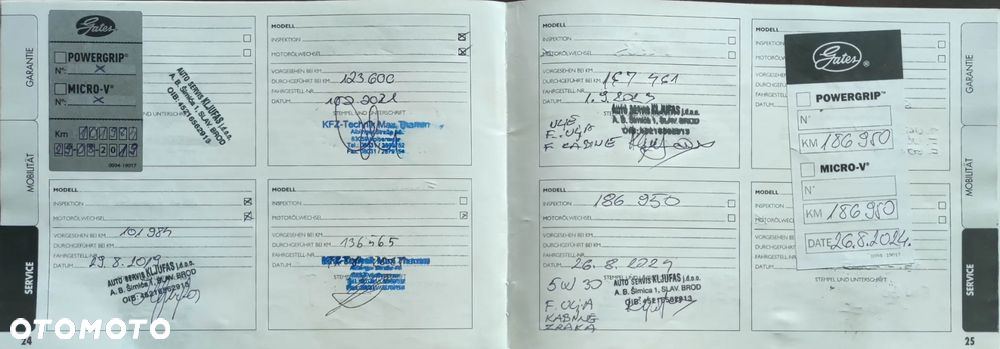 GARANTIE
MOBILITÄT
SERVICE
24
Gates
POWERGRIP®
N°: X
MICRO-V®
N°: X
Km 101984
29-08-2019
0004-19017
AUTO SERVIS KLJUFAS j.d.o.o.
A. B. Šimića 1, SLAV. BROD
STEMPEL UND UNTERSCHRIFT
MODELL
INSPEKTION
MOTORÖLWECHSEL
VORGESEHEN BEI KM
DURCHGEFÜHRT BEI KM 123600
FAHRGESTELL-NR.
DATUM
STEMPEL UND UNTERSCHRIFT
KFZ-Technik
MODELL
INSPEKTION
MOTORÖLWECHSEL
VORGESEHEN BEI KM 101984
DURCHGEFÜHRT BEI KM
FAHRGESTELL-NR.
DATUM 29.8.2019
AUTO SERVIS KLJUFAS j.d.o.o.
A. B. Šimića 1, SLAV. BROD
MODELL
INSPEKTION
MOTORÖLWECHSEL
VORGESEHEN BEI KM
DURCHGEFÜHRT BEI KM 136565
FAHRGESTELL-NR.
DATUM
STEMPEL UND UNTERSCHRIFT
MODELL
INSPEKTION
MOTORÖLWECHSEL
VORGESEHEN BEI KM
DURCHGEFÜHRT BEI KM 167 461
FAHRGESTELL-NR.
DATUM 1.9.2023
STEMPEL UND UNTERSCHRIFT
AUTO SERVIS KLJUFAS j.d.o.o.
A. B. Šimića 1, SLAV. BROD
ULJE
F. ULJA
F. KABINE
MODELL
INSPEKTION 186 950
MOTORÖLWECHSEL
VORGESEHEN BEI KM
DURCHGEFÜHRT BEI KM
FAHRGESTELL-NR.
DATUM 26. 8. 2024
STEMPEL UND UNTERSCHRIFT
AUTO SERVIS KLJUFAS j.d.o.o.
A. B. Šimića 1, SLAV. BROD
5W 30
F. ULJA
KABINE
ZRAKA
MODELL
Gates
POWERGRIP™
N°
KM 186950
MICRO-V®
N°
KM 186950
DATE 26.8.2024.
0004 19017
MODELL
STEMPEL UND UNTERSCHRIFT
GARANTIE
MOBILITÄT
SERVICE
25
OTOMOTO